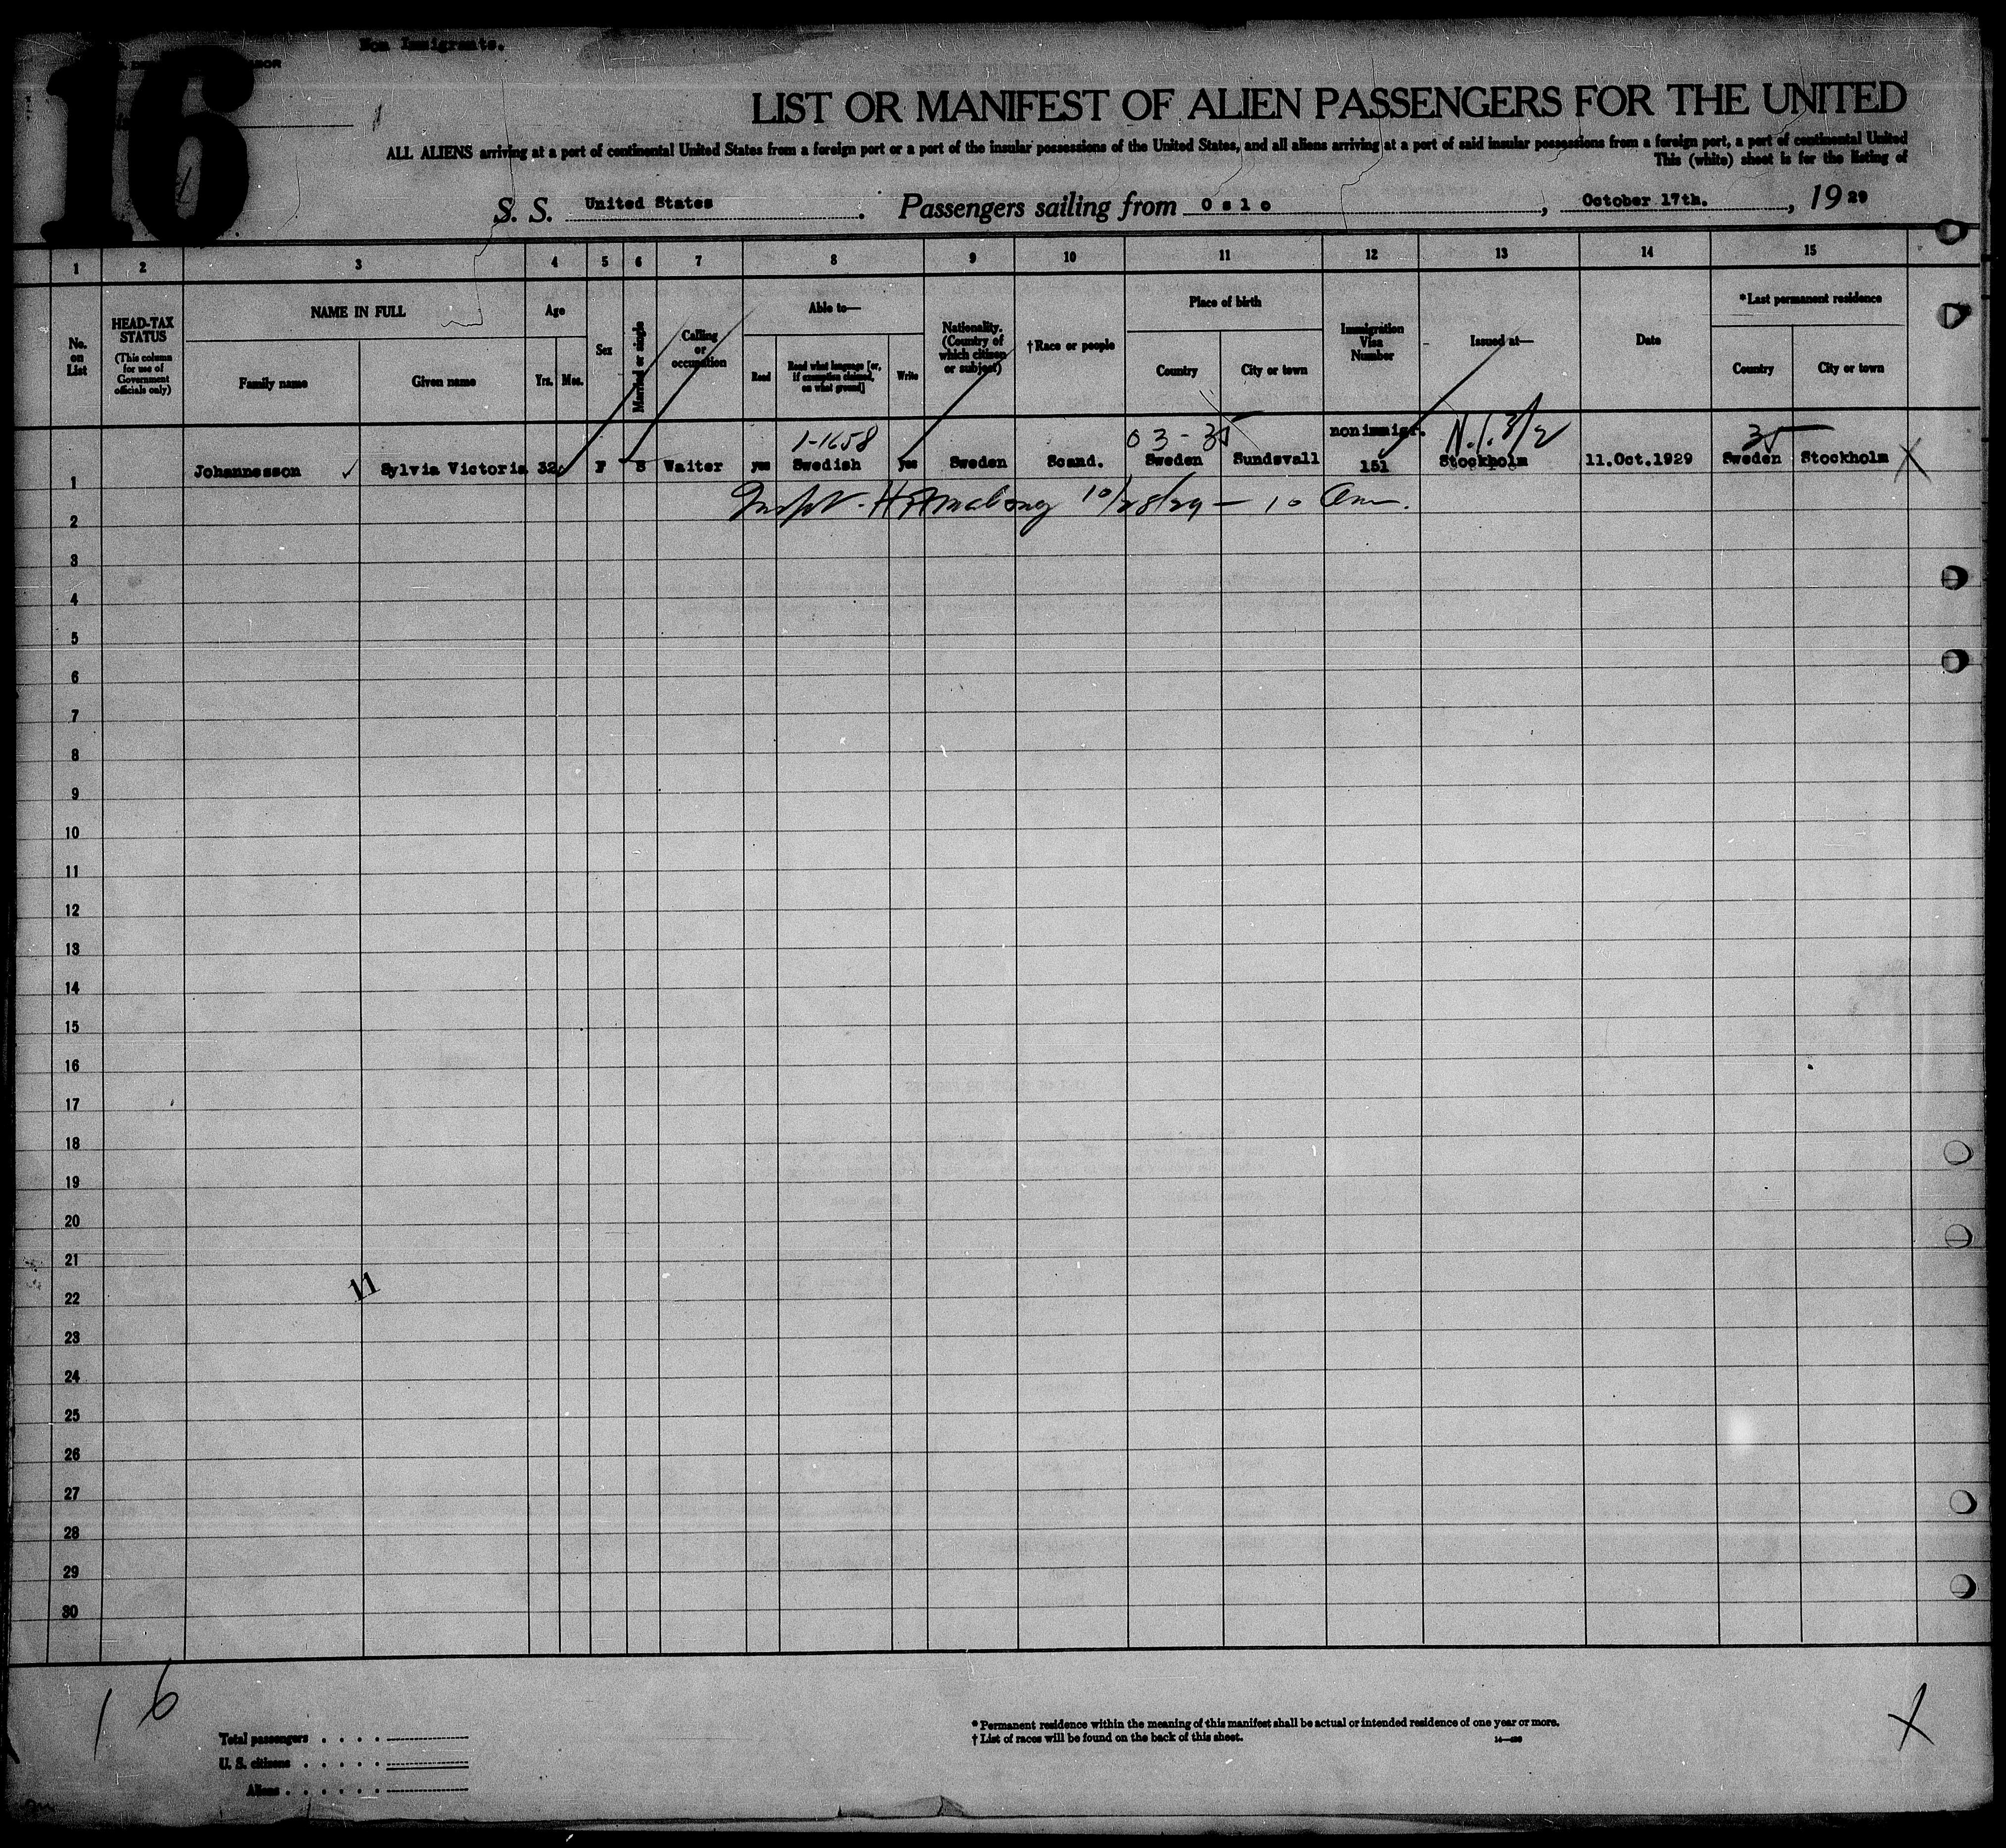 Non Immigrants.
16
LIST OR MANIFEST OF ALIEN PASSENGERS FOR THE UNITED
ALL ALIENS arriving at a port of continental United States from a foreign port or a port of the insular possessions of the United States, and all aliens arriving at a port of said insular possessions from a foreign port, a port of continental United
This (white) sheet is for the listing of
S. S. United States. Passengers sailing from Oslo, October 17th., 1929
1 2 3 4 5 6 7 8 9 10 11 12 13 14 15
No. on List
HEAD-TAX STATUS
(This column for use of Government officials only)
NAME IN FULL
Family name Given name
Age
Yrs. Mos.
Sex
Married or single
Calling or occupation
Able to—
Read
Read what language [or, if exemption claimed, on what ground]
Write
Nationality. (Country of which citizen or subject)
†Race or people
Place of birth
Country City or town
Immigration Visa Number
Issued at—
Date
*Last permanent residence
Country City or town
1-1658 03-35 nonimmigr. N.I. 3/2 35
1 Johannesson ✓ Sylvia Victoria 32 F S Waiter yes Swedish yes Sweden Scand. Sweden Sundsvall 151 Stockholm 11.Oct.1929 Sweden Stockholm X
10/28/29 — 10 am.
2
3
4
5
6
7
8
9
10
11
12
13
14
15
16
17
18
19
20
21
11
22
23
24
25
26
27
28
29
30
16
X
Total passengers . . . .
U. S. citizens . . . . .
Aliens . . . . . .
* Permanent residence within the meaning of this manifest shall be actual or intended residence of one year or more.
† List of races will be found on the back of this sheet.